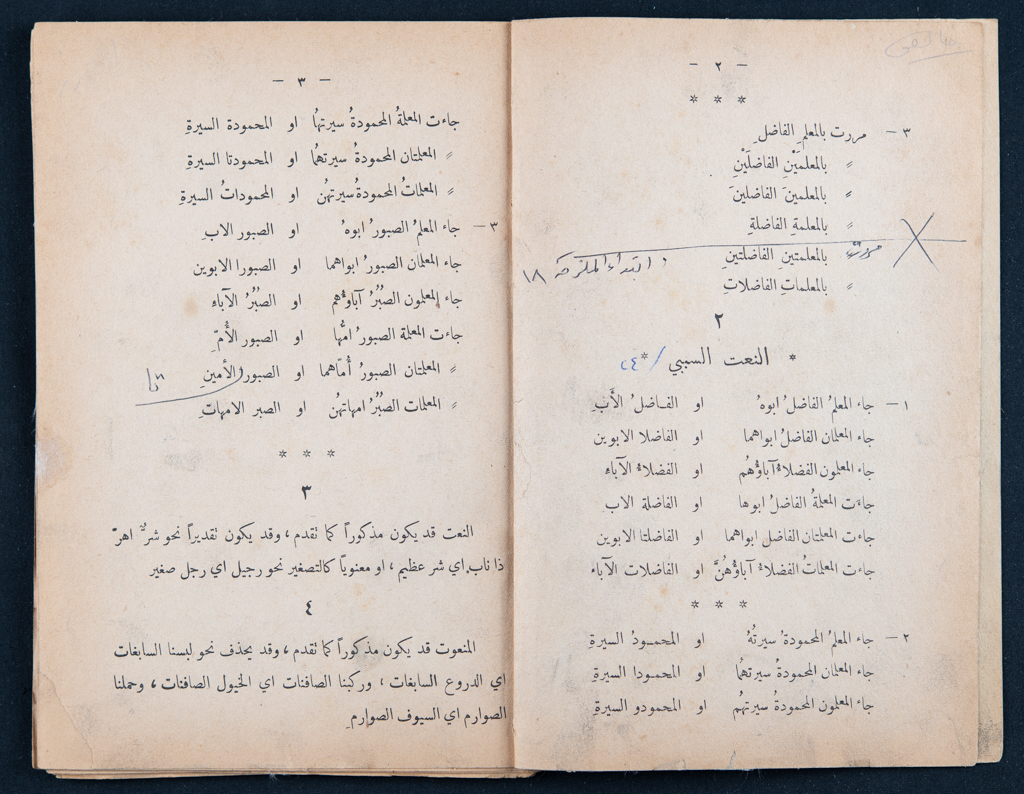 — ٢ —
* * *
٣ — مررت بالمعلمِ الفاضلِ
〃 بالمعلمَيْنِ الفاضلَيْنِ
〃 بالمعلمينَ الفاضلينَ
〃 بالمعلمةِ الفاضلةِ
مررت بالمعلمتينِ الفاضلتينِ
〃 بالمعلماتِ الفاضلاتِ
١٨
٢
* النعت السببي *
١ — جاء المعلمُ الفاضلُ ابوهُ او الفاضلُ الأَبِ
جاء المعلمان الفاضلُ ابواهما او الفاضلا الابوين
جاء المعلمون الفضلاءُ آباؤُهُم او الفضلاءُ الآباء
جاءَت المعلمةُ الفاضلُ ابوها او الفاضلة الاب
جاءت المعلمتان الفاضل ابواهما او الفاضلتا الابوين
جاءت المعلماتُ الفضلاءُ آباؤُهُنَّ او الفاضلات الآباء
* * *
٢ — جاء المعلمُ المحمودةُ سيرتُهُ او المحمودُ السيرةِ
جاء المعلمان المحمودةُ سيرتهُما او المحمودا السيرةِ
جاء المعلمون المحمودةُ سيرتهُم او المحمودو السيرةِ
— ٣ —
جاءت المعلمةُ المحمودةُ سيرتهُا او المحمودة السيرةِ
〃 المعلمتان المحمودةُ سيرتهُما او المحمودتا السيرةِ
〃 المعلماتُ المحمودةُ سيرتهُن او المحموداتُ السيرةِ
٣ — جاء المعلمُ الصبورُ ابوهُ او الصبور الابِ
جاء المعلمان الصبورُ ابواهما او الصبورا الابوين
جاء المعلمون الصُبُرُ آباؤُهم او الصُبُرُ الآباءِ
جاءت المعلمة الصبورُ امُّها او الصبور الأُمِّ
〃 المعلمتان الصبورُ أُمّاهما او الصبورا الأمينِ
〃 المعلمات الصبُرُ امهاتهُن او الصبر الامهاتِ
* * *
٣
النعت قد يكون مذكوراً كما تقدم ، وقد يكون تقديراً نحو شرٌّ اهرّ
ذا ناب اي شر عظيم ، او معنوياً كالتصغير نحو رجيل اي رجل صغير
٤
المنعوت قد يكون مذكوراً كما تقدم ، وقد يحذف نحو لبسنا السابغات
اي الدروع السابغات ، وركبنا الصافنات اي الخيول الصافنات ، وحملنا
الصوارم اي السيوف الصوارم .